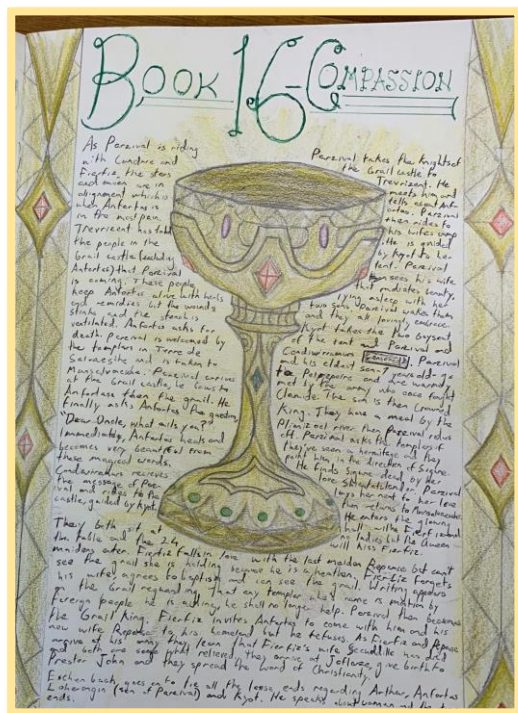 BOOK 16 - COMPASSION
As Parzival is riding
with Cundare and
Fierfiz, the stars
and moon are in
alignment which is
when Anfortas is
in the most pain.
Trevrizent has told
the people in the
Grail castle (excluding
Anfortas) that Parzival
is coming. These people
keep Anfortas alive with herbs
and remedies but the wounds
stinks and the stench is
ventilated. Anfortas asks for
death. Parzival is welcomed by
the templars in Terre de
Salvaesche and is taken to
Munsalvaesche. Parzival arrives
at the Grail castle, he bows to
Anfortas then the grail. He
finally asks Anfortas the question,
"Dear Uncle, what ails you?"
Immediately, Anfortas heals and
becomes very beautiful from
these magical words.
Condwiramurs recieves
the message of Parz-
ival and rides to the
castle, guided by Kyot.
Parzival takes the knights of
the Grail castle to
Trevrizent. He
meets him and
tells about Anf-
ortas. Parzival
then rides to
his wifes camp
. He is guided
by Kyot to her
tent. Parzival
sees his wife
that radiates beauty,
lying asleep with her
two sons. Parzival wakes them
and they all joyously embrace.
Kyot takes the two boys out
of the tent and Parzival and
Condwiramurs . Parzival
and his eldest son - 7 years old - go
to and are warmly
met by the army who once fought
Clamide. The son is then crowned
King. They have a meal by the
Plimizoel river then Parzival rides
off. Parzival asks the templars if
they've seen a hermitage and they
point him in the direction of Sigune.
He finds Sigune dead by her
love Shinatulander. Parzival
lays her next to her love
then returns to Munsalvaesche.
He enters the glowing
hall while Fierfiz and
ladies but the Queen
will kiss Fierfiz.
They both sit at
the table and the 24
maidens enter. Fierfiz falls in love with the last maiden Repanse but can't
see the grail she is holding because he is a heathen. Fierfiz forgets
his wife, agrees to baptism and can see the grail. Writing appears
on the Grail regarding that any templar who's name is mention by
foreign people he is aiding, he shall no longer help. Parzival then becomes
the Grail King. Fierfiz invites Anfortas to come with him and his
new wife Repanse to his homeland but he refuses. As Fierfiz and Repanse
arrive at his army, they learn that Fierfiz's wife Secundille has died
and both are somewhat relieved. They arrive at Joflanze, give birth to
Prester John and they spread the word of Christianity.
Eschenbach goes on to tie all the loose ends regarding Arthur, Anfortas
Loherangin (son of Parzival) and Kyot. He speaks about woman and the
ends.